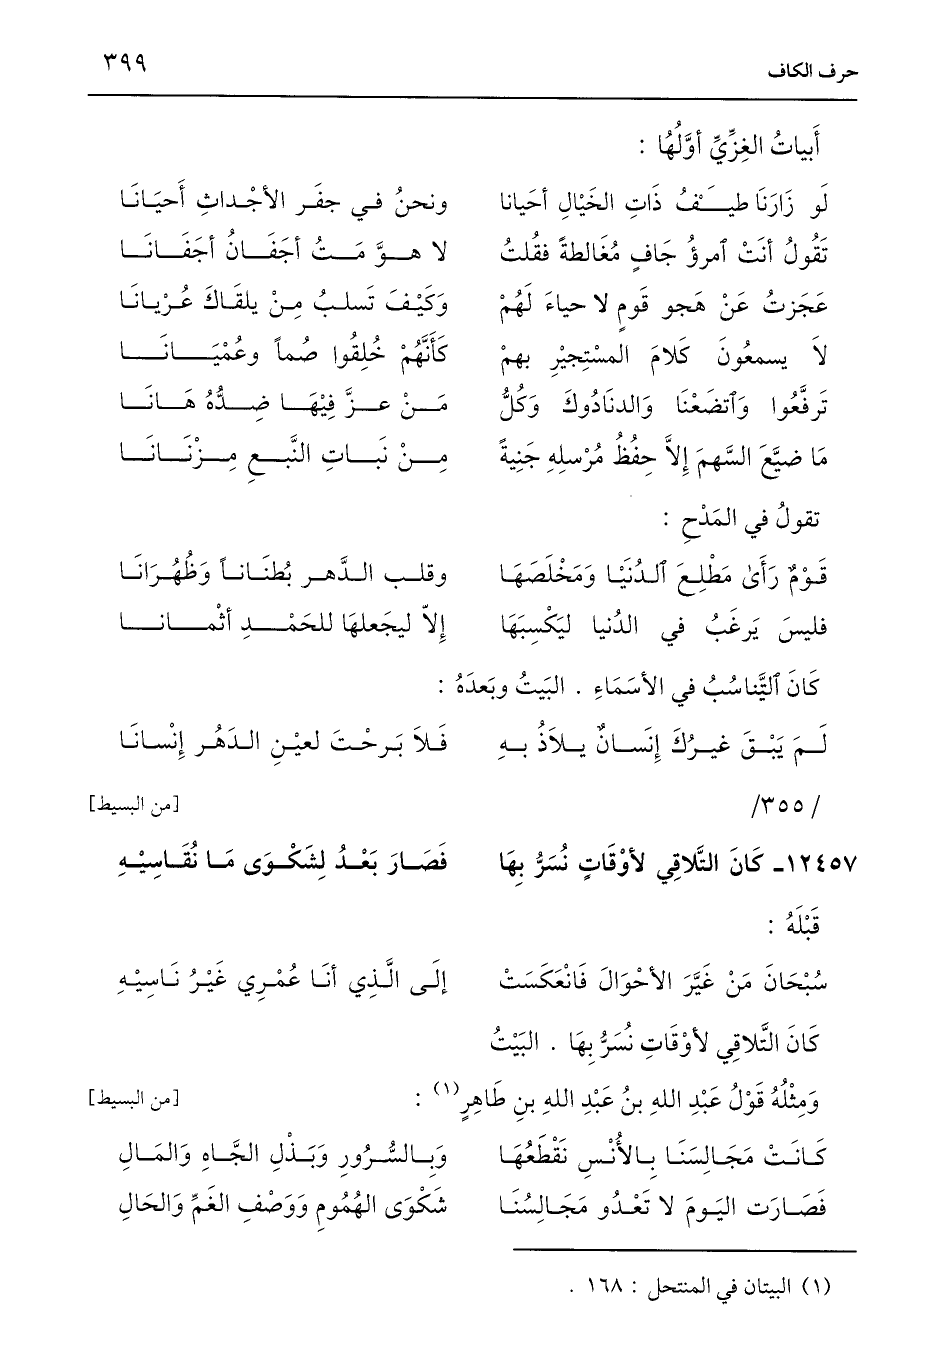 حرف الكاف ٣٩٩
أَبياتُ الغِزِّيِّ أوَّلُهَا :
لَو زَارَنَا طيــفُ ذَاتِ الخَيَالِ أحيَانا ونحنُ فـي جفَـر الأجْـداثِ أَحيَـانَـا
تَقُولُ أنتْ ٱمرؤُ جَافٍ مُغَالطةً فقُلتُ لا هـوَّ مَـتُ أجفَـانُ أجفَـانَـا
عَجَزتُ عَنْ هَجوِ قَومٍ لا حياءَ لَهُمْ وَكَيْـفَ تَسلـبُ مِـنْ يلقَـاكَ عُـرْيـانَـا
لاَ يسمعُونَ كَلامَ المسْتجيْرِ بهمْ كَأنَّهُمْ خُلِقُوا صُماً وعُمْيَـانَـا
تَرفَّعُوا وَٱتضَعْنَا وَالدنَادُوكَ وَكُلُّ مَـنْ عـزَّ فِيْهَـا ضِـدُّهُ هَـانَـا
مَا ضيَّعَ السَّهمَ إلاَّ حِفُظُ مُرْسلِهِ جَنِيةً مِـنْ نَبـاتِ النَّبـعِ مِـزْنَـانَـا
تقولُ في المَدْحِ :
قَـوْمٌ رَأَىٰ مَطْلِعَ ٱلـدُنْيَـا وَمَخْلَصَهَـا وقلـب الـدَّهـرِ بُطْنَـانـاً وَظُهْـرَانَـا
فليسَ يَرغَبُ في الدُنيا ليَكْسِبَهَا إلاّ ليجَعلهَا للحَمْـدِ أثْمـانـا
كَانَ ٱلتَّناسُبُ في الأسَمَاءِ . البَيتُ وبَعدَهُ :
لَـم يَبْـقَ غيـرُكَ إنسـانٌ يـلاَذُ بـهِ فَـلاَ بَـرحْـتَ لعيْـنِ الـدَهُـر إنْسـانَـا
/٣٥٥/ [من البسيط]
١٢٤٥٧ـ كَانَ التَّلاَقِي لأوْقَاتٍ نُسَرُّ بِهَا فَصَـارَ بَعْـدُ لِشَكْـوَى مَـا نُقَـاسِيْـهِ
قَبْلَهُ :
سُبْحَانَ مَنْ غَيَّرَ الأحْوَالَ فَانْعَكَسَتْ إلَـى الَّـذِي أنَـا عُمْـرِي غَيْـرُ نَـاسِيْـهِ
كَانَ التَّلاقِي لأوْقَاتِ نُسَرُّ بِهَا . البَيْتُ
وَمِثْلُهُ قَوْلُ عَبْدِ اللهِ بنُ عَبْدِ اللهِ بنِ طَاهِرٍ(١) : [من البسيط]
كَـانَـتْ مَجَـالِسَنَـا بـالأُنْـسِ نَقْطَعُهَـا وَبـالسُّـرُورِ وَبَـذْلِ الجَّـاهِ وَالمَـالِ
فَصَـارَت اليَـومَ لا تَعْـدُو مَجَـالِسُنَـا شَكْوَى الهُمُومِ وَوَصْفِ الغَمِّ وَالحَالِ
(١) البيتان في المنتحل : ١٦٨ .